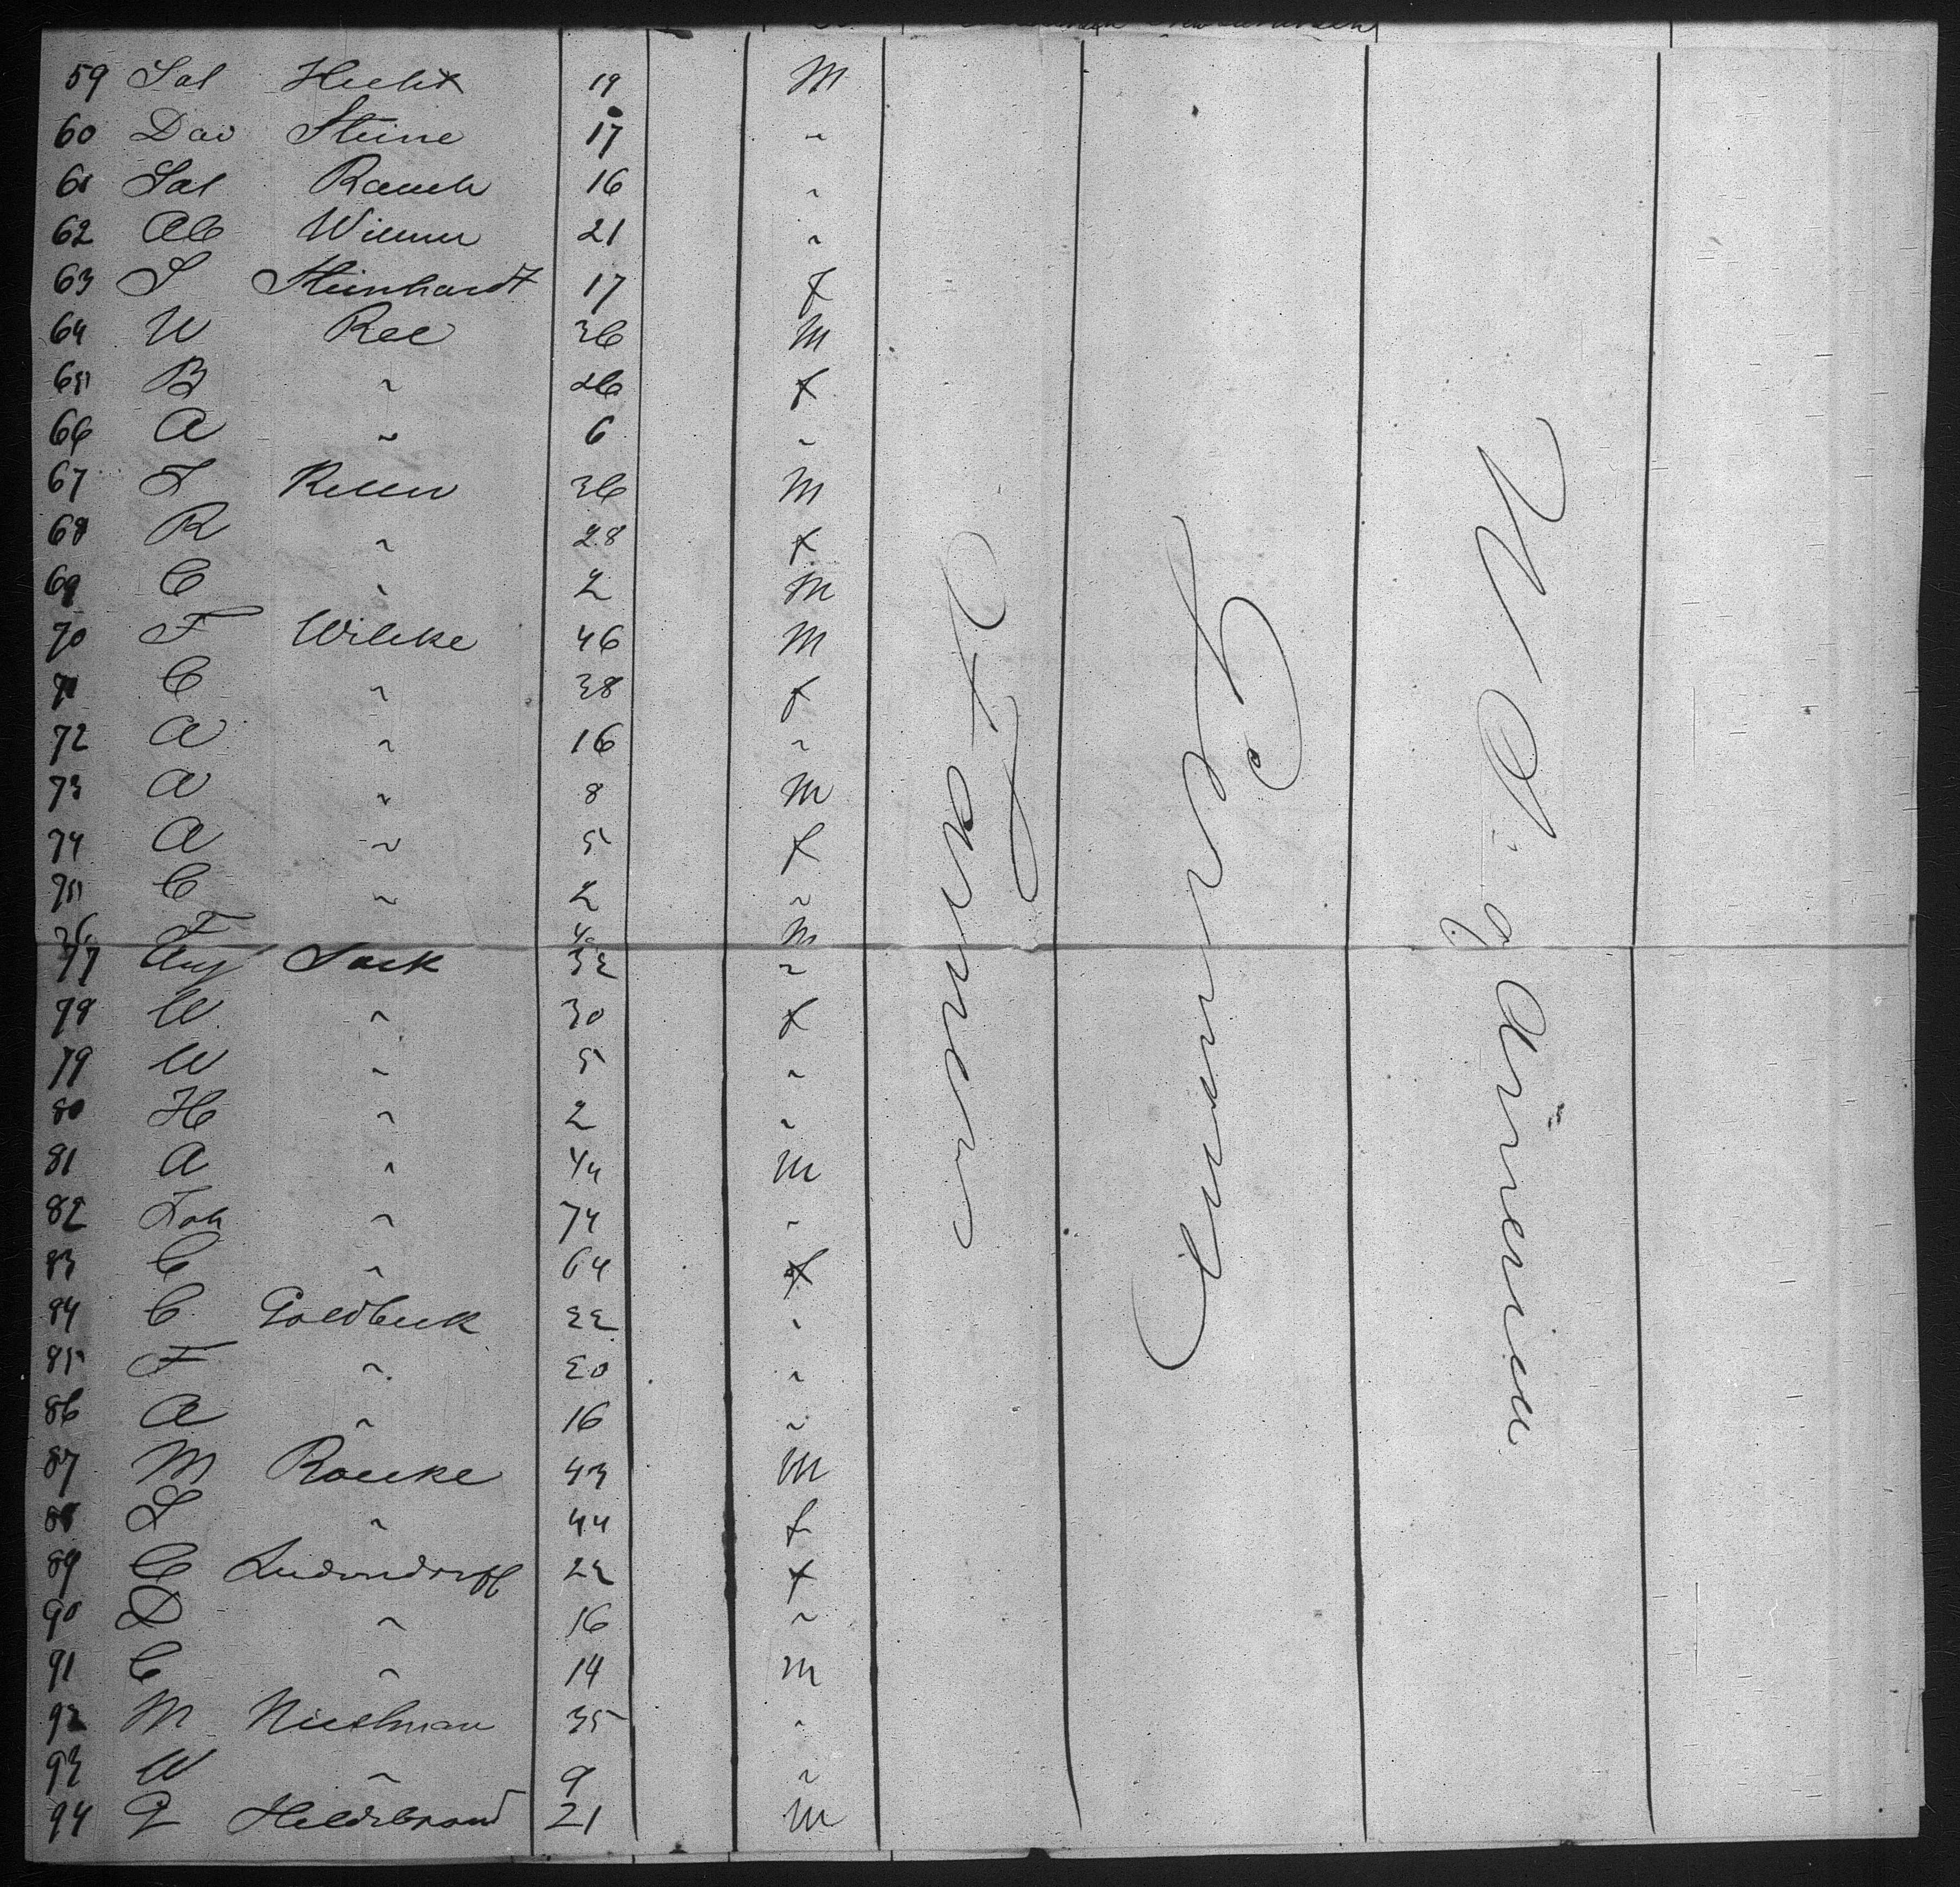 59 Sal Hecht 19 M
60 Dav Steine 17 "
61 Sal Rauch 16 "
62 Ab Wiener 21 "
63 S Steinhardt 17 f
64 W Ree 36 M
65 B " 26 f
66 A " 6 "
67 L 36 M
68 R " 28 f
69 C " 2 M
70 F Wilcke 46 M
71 C " 38 f
72 A " 16 "
73 A " 8 M
74 A " 5 f
75 C " 2 "
76 F M
77 Aug Sack 32 "
78 W " 30 f
79 W " 5 "
80 H " 2 "
81 A " 44 M
82 Joh " 74 "
83 C " 64 f
84 C Goldbeck 22 "
85 F " 20 "
86 A " 16 "
87 M Raecke 43 M
88 L " 44 f
89 C Ludendorff 22 f
90 D " 16 "
91 C " 14 M
92 M 35 "
93 W " 9 "
94 G Hildebrand 21 M
Farmer
Germany
U S of America